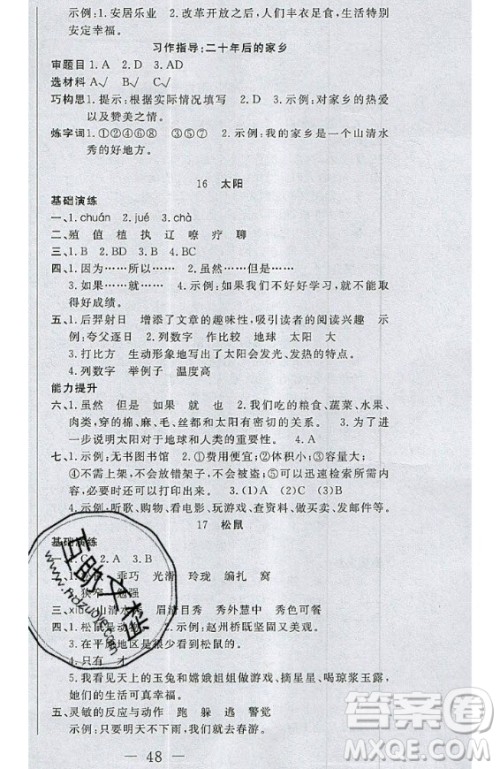 示例:1.安居乐业 2.改革开放之后,人们丰衣足食,特别
安定幸福。
习作指导:二十年后的家乡
审题目1.A 2.D 3.AD
选材料√ √ √
巧构思1.提示:根据实际情况填写 2.D 3.示例:对家乡的热爱
以及赞美之情。
炼字词1.①②④⑥⑧ ③⑤⑦ 2.示例:我的家乡是一个山清水
秀的好地方。
16 太阳
基础演练
一、1.chuán 2.jué 3.chà
二、殖 值 植 执 辽 嘹 疗 聊
三、1.B 2.BD 3.B 4.BC
四、1.因为……所以…… 2.虽然……但是……
3.如果……就…… 4.示例:如果我们不好好学习,就不能取
得好成绩。
五、1.后羿射日 增添了文章的趣味性,吸引读者的阅读兴趣 示
例:夸父逐日 2.列数字 作比较 大
3.打比方 生动形象地写出了太阳会发光、发热的特点。
4.列数字 举例子 温度高
能力提升
六、1.虽然 但是 如果 就 也 2.我们吃的粮食、蔬菜、水果、
肉类,穿的棉、麻、毛、丝都和太阳有密切的关系。 3.为了进
一步说明太阳对于地球和人类的重要性。 4.A
七、1.示例:无书图书馆 2.①费用便宜 ②体积小 ③容量大
④不需上架,不会放错架子,不会找不到 ⑤可以迅速检索
⑥还可以打印出来。 3.(1)A (2)C
4.示例:听歌、购物、看电影、玩游戏、查资料、买东西、发邮件。
17 松鼠
基础演练
一、1.C 2.A 3.B
乖巧 光滑 玲珑 编扎 窝
强
山清水 眉清目秀 秀外慧中
四、1.松鼠 动 2.示例:赵州桥既坚固又美观。
3.在平 地区是很少看到松鼠的。
4.只有 才
5.我看见天上的玉兔和嫦娥姐姐,摘星星、喝琼浆玉露,
她们的生活可真幸福。
五、灵敏的反应与动作 跑 躲 逃 警觉
示例:只要明天不下雨,我们就去春游。
— 48 —
互助文档
www.hdzuoye.com
作业精灵
MXQE.COM